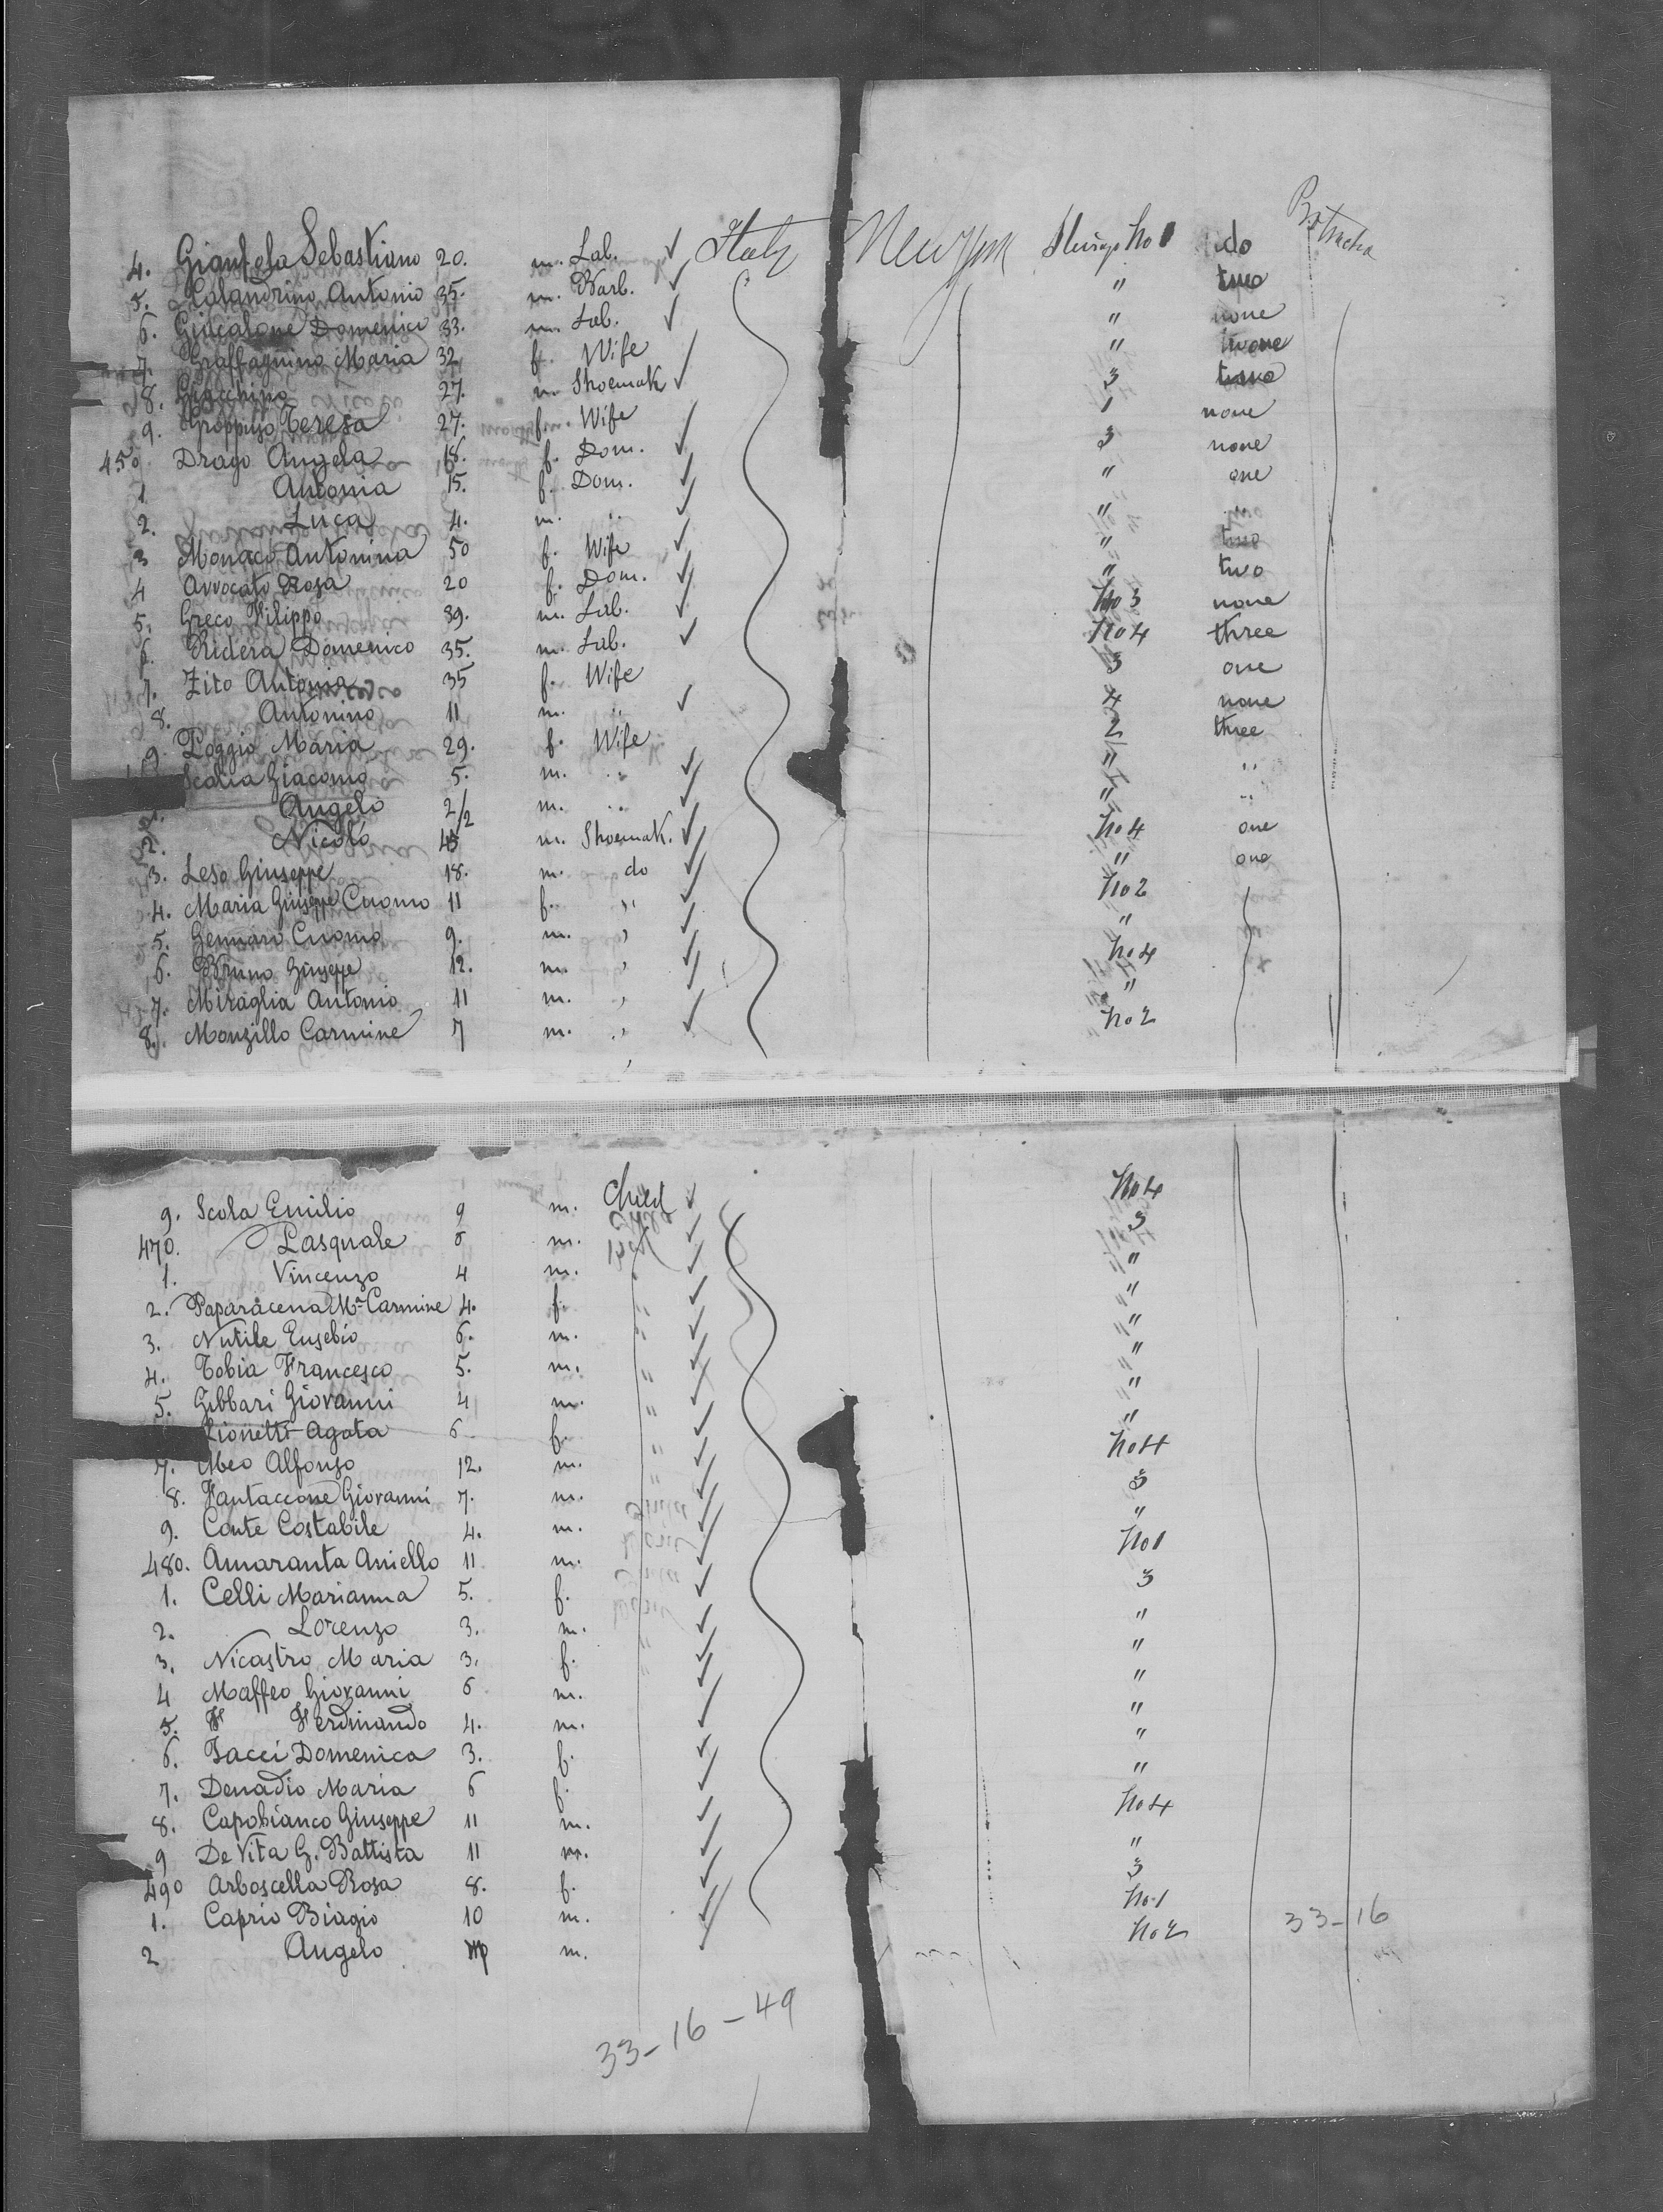 4. Gianfola Sebastiano 20. m. Lab. ✓ Italy New York Steerage No 1 do
5. Calandrino Antonio 35. m. Barb. ✓ " two
6. Giacalone Domenico 33. m. Lab. ✓ " none
7. Graffagnino Maria 32 f. Wife "
8. Giacchino 27. m Shoemak ✓ 3
9. Teresa 27. f. Wife 1 none
450. Drago Angela 18. f. Dom. ✓ 3 none
1. Antonia 15. f. Dom. ✓ " one
2. Luca 4. m. " ✓ " "
3 Monaco Antonina 50 f. Wife ✓ " two
4 Avvocato Rosa 20 f. Dom. ✓ " two
5. Greco Filippo 39. m. Lab. ✓ No 3 none
6. Ridera Domenico 35. m. Lab. ✓ No 4 three
7. Zito Antonia 35 f. Wife 3 one
8. Antonino 11 m. " ✓ 4 none
9. Poggio Maria 29. f. Wife 2 three
Scalia Giacomo 5. m. " ✓ " "
1. Angelo 2/2 m. " ✓ " "
2. Nicolò m. Shoemak. ✓ No 4 one
3. Leso Giuseppe 18. m. do ✓ " one
4. Maria Giuseppe Cuomo 11 f. " ✓ No 2
5. Gennaro Cuomo 9. m. " ✓ "
6. Bruno Giuseppe 12. m. " ✓ No 4
7. Miraglia Antonio 11 m. " ✓ "
8. Monzillo Carmine 7 m. " ✓ No 2
9. Scola Emilio 9 m. Child ✓ No 4
470. Pasquale 6 m. ✓ 3
1. Vincenzo 4 m. ✓ "
2. Paparacena Ma Carmine 4. f. " ✓ "
3. Nutile Eusebio 6. m. " ✓ "
4. Tobia Francesco 5. m. " ✓ "
5. Gibbari Giovanni 4 m. " ✓ "
Lionetti Agata 6 f. " ✓ "
7. Meo Alfonso 12. m. " ✓ No 4
8. Fantaccone Giovanni 7. m. ✓ 3
9. Conte Costabile 4. m. ✓ "
480. Amaranta Aniello 11 m. ✓ No 1
1. Celli Marianna 5. f. ✓ 3
2. Lorenzo 3. m. ✓ "
3. Nicastro Maria 3. f. ✓ "
4 Maffeo Giovanni 6 m. ✓ "
5. Ferdinando 4. m. ✓ "
6. Iacci Domenica 3. f. ✓ "
7. Denadio Maria 6 f. ✓ "
8. Capobianco Giuseppe 11 m. ✓ No 4
9 De Vita G. Battista 11 m. ✓ "
490 Arboscella Rosa 8. f. ✓ 3
1. Caprio Biagio 10 m. ✓ No. 1
2 Angelo m. ✓ No 2
33-16
33-16-49